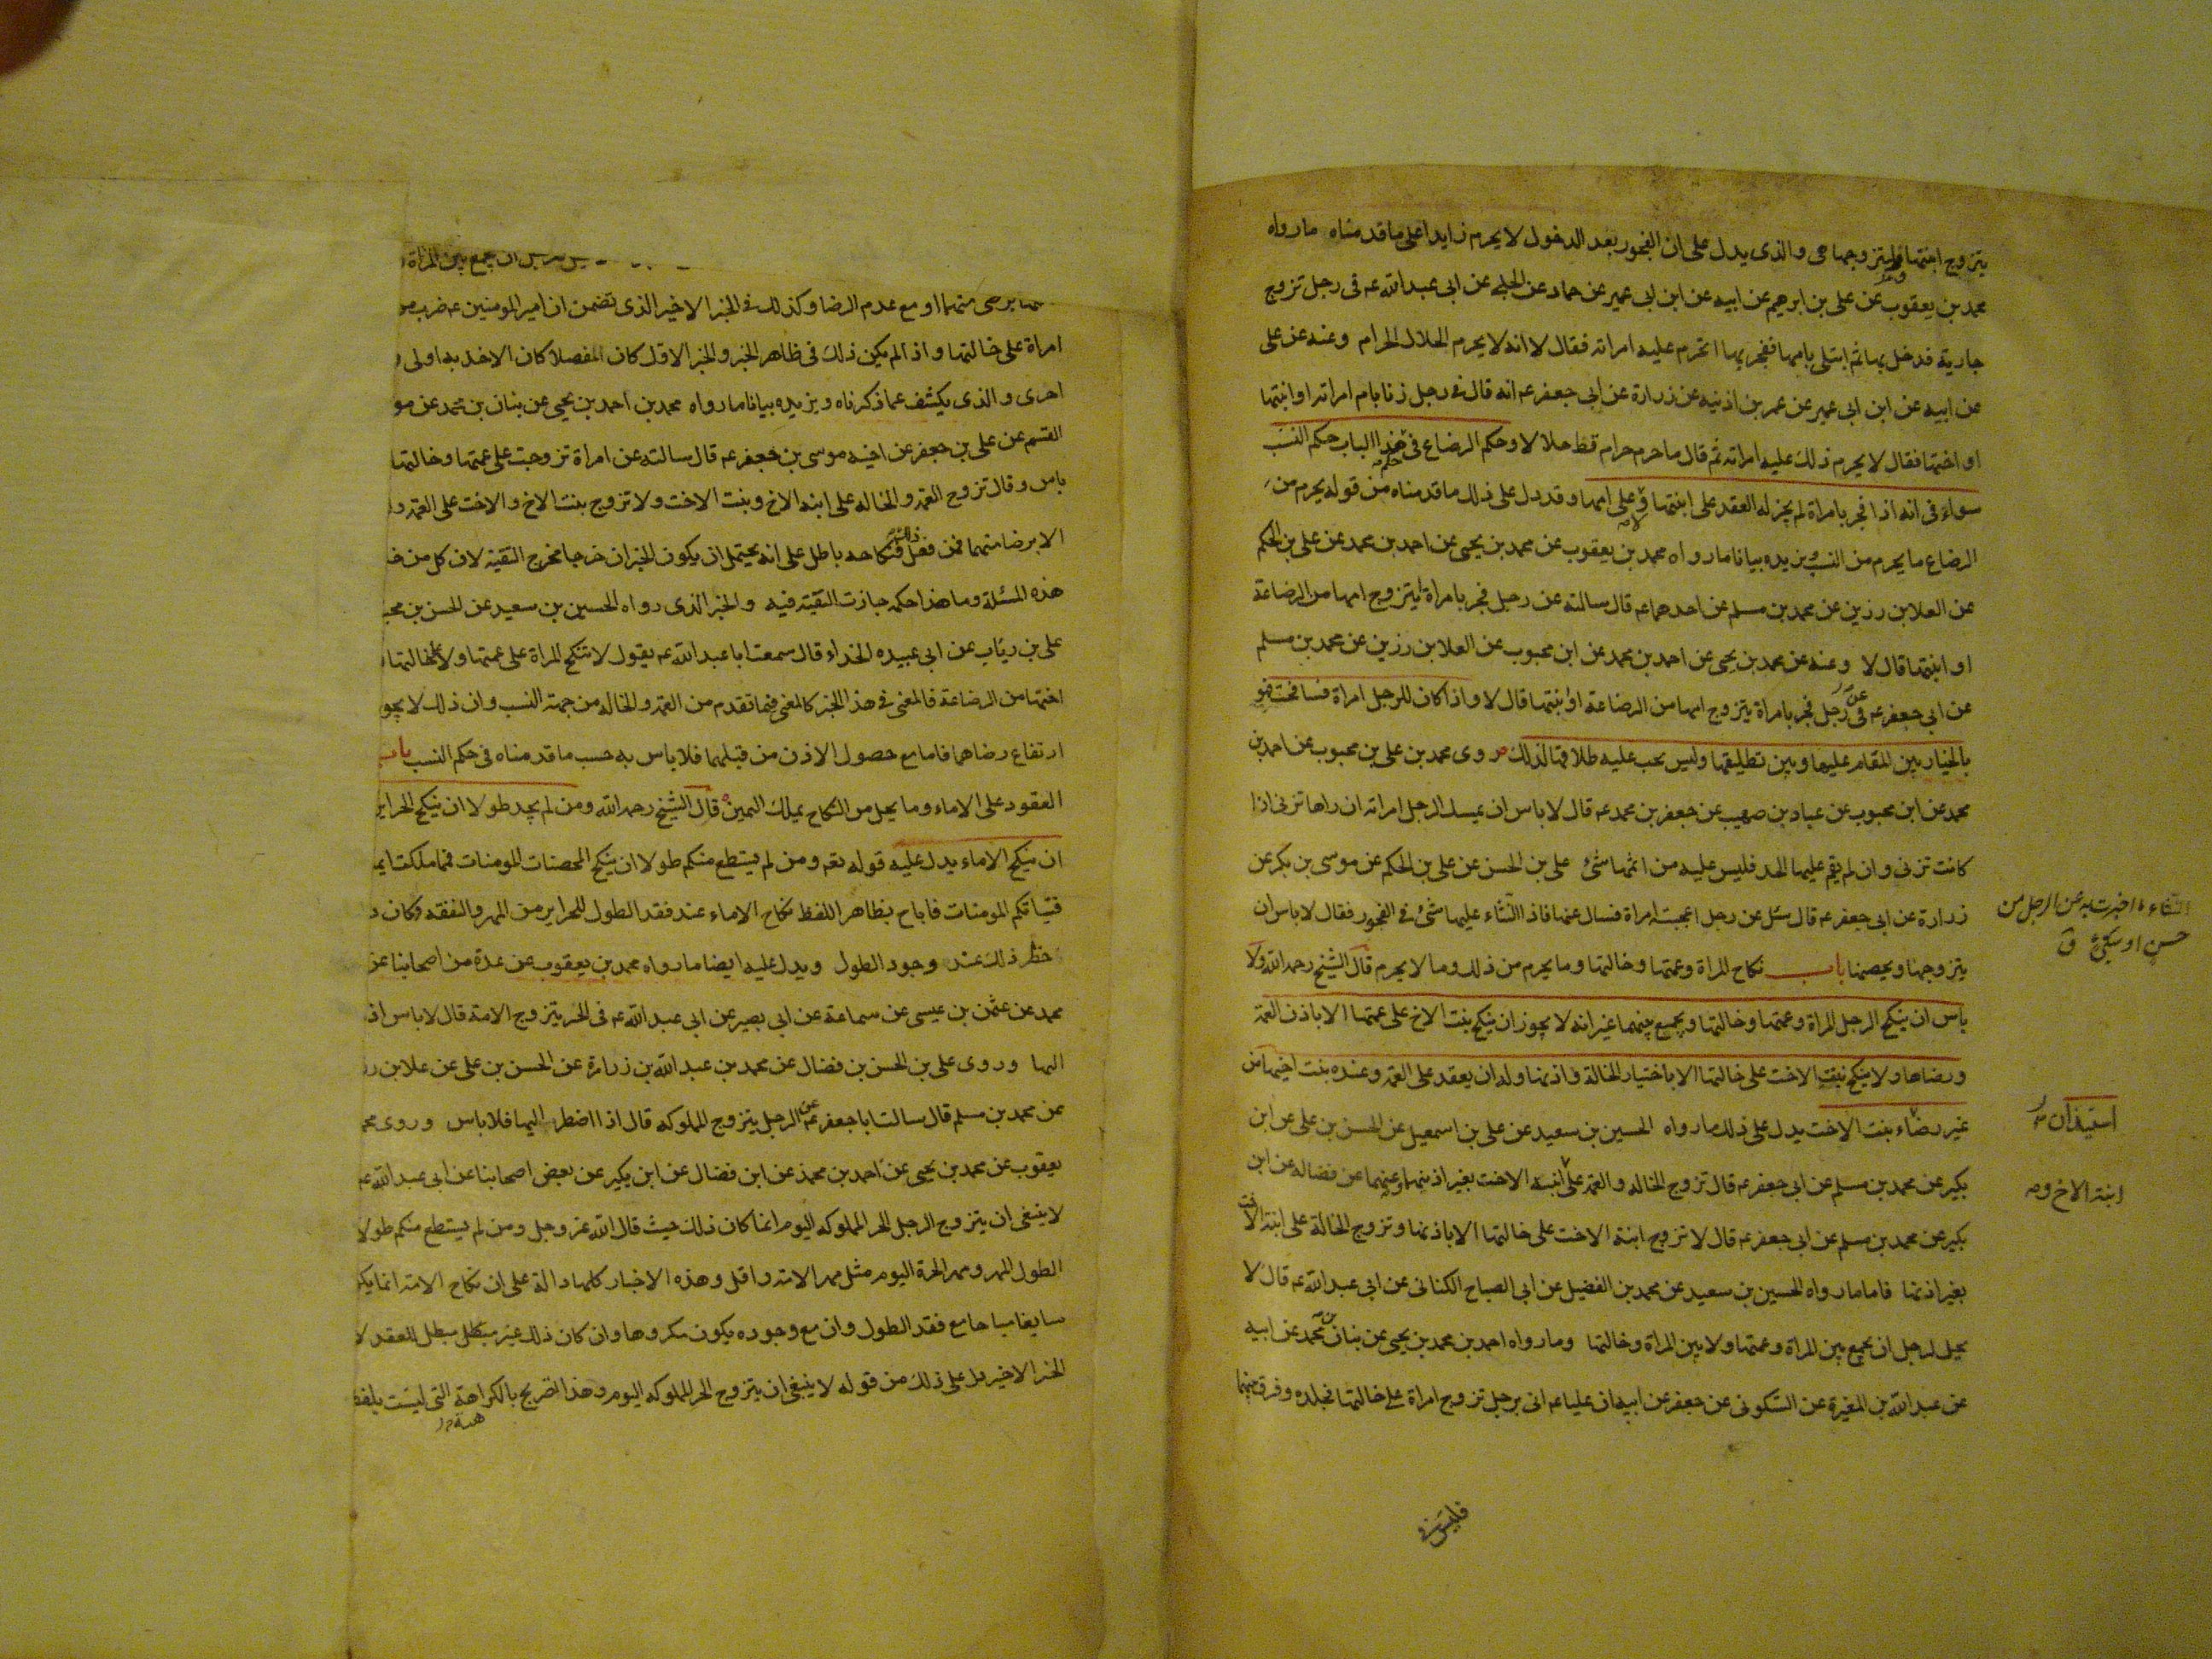 يتزوج ابنتها فليتزوجها هى والذى يدل على ان الفجور بعد الدخول لا يحرم زايدا على ما قدمناه ما رواه
محمد بن يعقوب عن على بن ابرهيم عن ابيه عن ابن ابى عمير عن حماد عن الحلبى عن ابى عبد الله عه فى رجل تزوج
جارية فدخل بها ثم ابتلى بامها ففجر بها اتحرم عليه امراته فقال لا انه لا يحرم الحلال الحرام وعنه عن على
عن ابيه عن ابن ابى عمير عن عمر بن اذينه عن زرارة عن ابى جعفر عه انه قال فى رجل زنا بام امراته او ابنتها
او اختها فقال لا يحرم ذلك عليه امراته ثم قال ما حرم حرام قط حلالا وحكم الرضاع فى هذا الباب حكم النسب
سواء فى انه اذا فجر بامراة لم يجز له العقد على ابنتها و على امها وقد دل على ذلك ما قدمناه من قوله يحرم من
الرضاع ما يحرم من النسب يزيده بيانا ما رواه محمد بن يعقوب عن محمد بن يحيى عن احمد بن محمد عن على بن الحكم
عن العلا بن رزين عن محمد بن مسلم عن احدهما عه قال سالته عن رجل فجر بامراة ايتزوج امها من الرضاعة
او ابنتها قال لا وعنه عن محمد بن يحيى عن احمد بن محمد عن ابن محبوب عن العلا بن رزين عن محمد بن مسلم
عن ابى جعفر عه فى رجل فجر بامراة يتزوج امها من الرضاعة او ابنتها قال لا واذا كان للرجل امراة فسافحت فهو
بالخيار بين المقام عليها وبين تطليقها وليس يجب عليه طلاقها لذلك روى محمد بن على بن محبوب عن احمد بن
محمد عن ابن محبوب عن عباد بن صهيب عن جعفر بن محمد عه قال لا باس ان يمسك الرجل امراته ان راها تزنى اذا
كانت تزنى وان لم يقم عليها الحد فليس عليه من اثمها شئ على بن الحسن عن على بن الحكم عن موسى بن بكر عن
زرارة عن ابى جعفر عه قال سئل عن رجل اعجبته امراة فسال عنها فاذا الثناء عليها شئ فى الفجور فقال لا باس ان
يتزوجها ويحصنها باب نكاح المراة وعمتها وخالتها وما يحرم من ذلك وما لا يحرم قال الشيخ رحمه الله ولا
باس ان ينكح الرجل المراة وعمتها وخالتها ويجمع بينهما غير انه لا يجوز ان ينكح بنت الاخ على عمتها الا باذن العمة
ورضاها ولا ينكح بنت الاخت على خالتها الا باختيار الخالة واذنها وله ان يعقد على العمة وعنده بنت اخيها من
غير رضاء بنت الاخت يدل على ذلك ما رواه الحسين بن سعيد عن على بن اسمعيل عن الحسن بن على عن ابن
بكير عن محمد بن مسلم عن ابى جعفر عه قال تزوج الخاله والعمة على ابنة الاخت بغير اذنهما وعنهما عن فضاله عن ابن
بكير عن محمد بن مسلم عن ابى جعفر عه قال لا تزوج ابنة الاخت على خالتها الا باذنها وتزوج الخالة على ابنة الاخت
بغير اذنها فاما ما رواه الحسين بن سعيد عن محمد بن الفضيل عن ابى الصباح الكنانى عن ابى عبد الله عه قال لا
يحل لرجل ان يجمع بين المراة وعمتها ولا بين المراة وخالتها وما رواه احمد بن محمد بن يحيى عن بنان بن محمد عن ابيه
عن عبد الله بن المغيرة عن السكونى عن جعفر عن ابيه ان عليا عه اتى برجل تزوج امراة على خالتها فجلده وفرق بينهما
الثناء اخبرت به عن الرجل من
حسن او سيئ ق
استيذان
ابنة الاخ و
فليس
ان يجمع بين المراة
برضى منهما او مع عدم الرضا وكذلك فى الخبر الاخير الذى تضمن ان امير المومنين عه ضرب من
امراة على خالتها واذا لم يكن ذلك فى ظاهر الخبر والخبر الاول كان المفصلا كان الاخذ به اولى و
احرى والذى يكشف عما ذكرناه ويزيده بيانا ما رواه محمد بن احمد بن يحيى عن بنان بن محمد عن مو
القسم عن على بن جعفر عن اخيه موسى بن جعفر عه قال سالته عن امراة تزوجت على عمتها وخالتها
باس وقال تزوج العمة والخاله على ابنة الاخ وبنت الاخت ولا تزوج بنت الاخ والاخت على العمة وا
الا برضا منهما فمن فعل فنكاحه باطل على انه يحتمل ان يكون الخبران خرجا مخرج التقية لان كل من خا
هذه المسئلة وما هذا حكمه جازت التقية فيه والخبر الذى رواه الحسين بن سعيد عن الحسن بن محب
على بن رئاب عن ابى عبيده الحذاء قال سمعت ابا عبد الله عه يقول لا تنكح المراة على عمتها ولا على خالتها
اختها من الرضاعة فالمعنى فى هذا الخبر كالمعنى فيما تقدم من العمة والخاله من جهة النسب وان ذلك لا يجو
ارتفاع رضاهما فاما مع حصول الاذن من قبلهما فلا باس به حسب ما قدمناه فى حكم النسب باب
العقود على الاماء وما يحل من النكاح بملك اليمين قال الشيخ رحمه الله ومن لم يجد طولا ان ينكح الحراير
ان ينكح الاماء يدل عليه قوله تعه ومن لم يستطع منكم طولا ان ينكح المحصنات المومنات فمما ملكت ايما
فتياتكم المومنات فاباح بظاهر اللفظ نكاح الاماء عند فقد الطول للحراير من المهر والنفقه وكان د
حظر ذلك عند وجود الطول ويدل عليه ايضا ما رواه محمد بن يعقوب عن عدة من اصحابنا عن
محمد عن عثمن بن عيسى عن سماعة عن ابى بصير عن ابى عبد الله عه فى الحر يتزوج الامة قال لا باس اذ
اليها وروى على بن الحسن بن فضال عن محمد بن عبد الله بن زرارة عن الحسن بن على عن علا بن ر
عن محمد بن مسلم قال سالت ابا جعفر عه عن الرجل يتزوج المملوكه قال اذا اضطر اليها فلا باس وروى محم
يعقوب عن محمد بن يحيى عن احمد بن محمد عن ابن فضال عن ابن بكير عن بعض اصحابنا عن ابى عبد الله عه
لا ينبغى ان يتزوج الرجل الحر المملوكه اليوم انما كان ذلك حيث قال الله عز وجل ومن لم يستطع منكم طولا
الطول المهر ومهر الحرة اليوم مثل مهر الامة واقل وهذه الاخبار كلها دالة على ان نكاح الامة انما يكو
سايغا مباحا مع فقد الطول وان مع وجوده يكون مكروها وان كان ذلك غير مبطل العقد لا
الخبر الاخير دل على ذلك من قوله لا ينبغى ان يتزوج الحر المملوكه اليوم وهذا تصريح بالكراهة التى ليست بلفظ